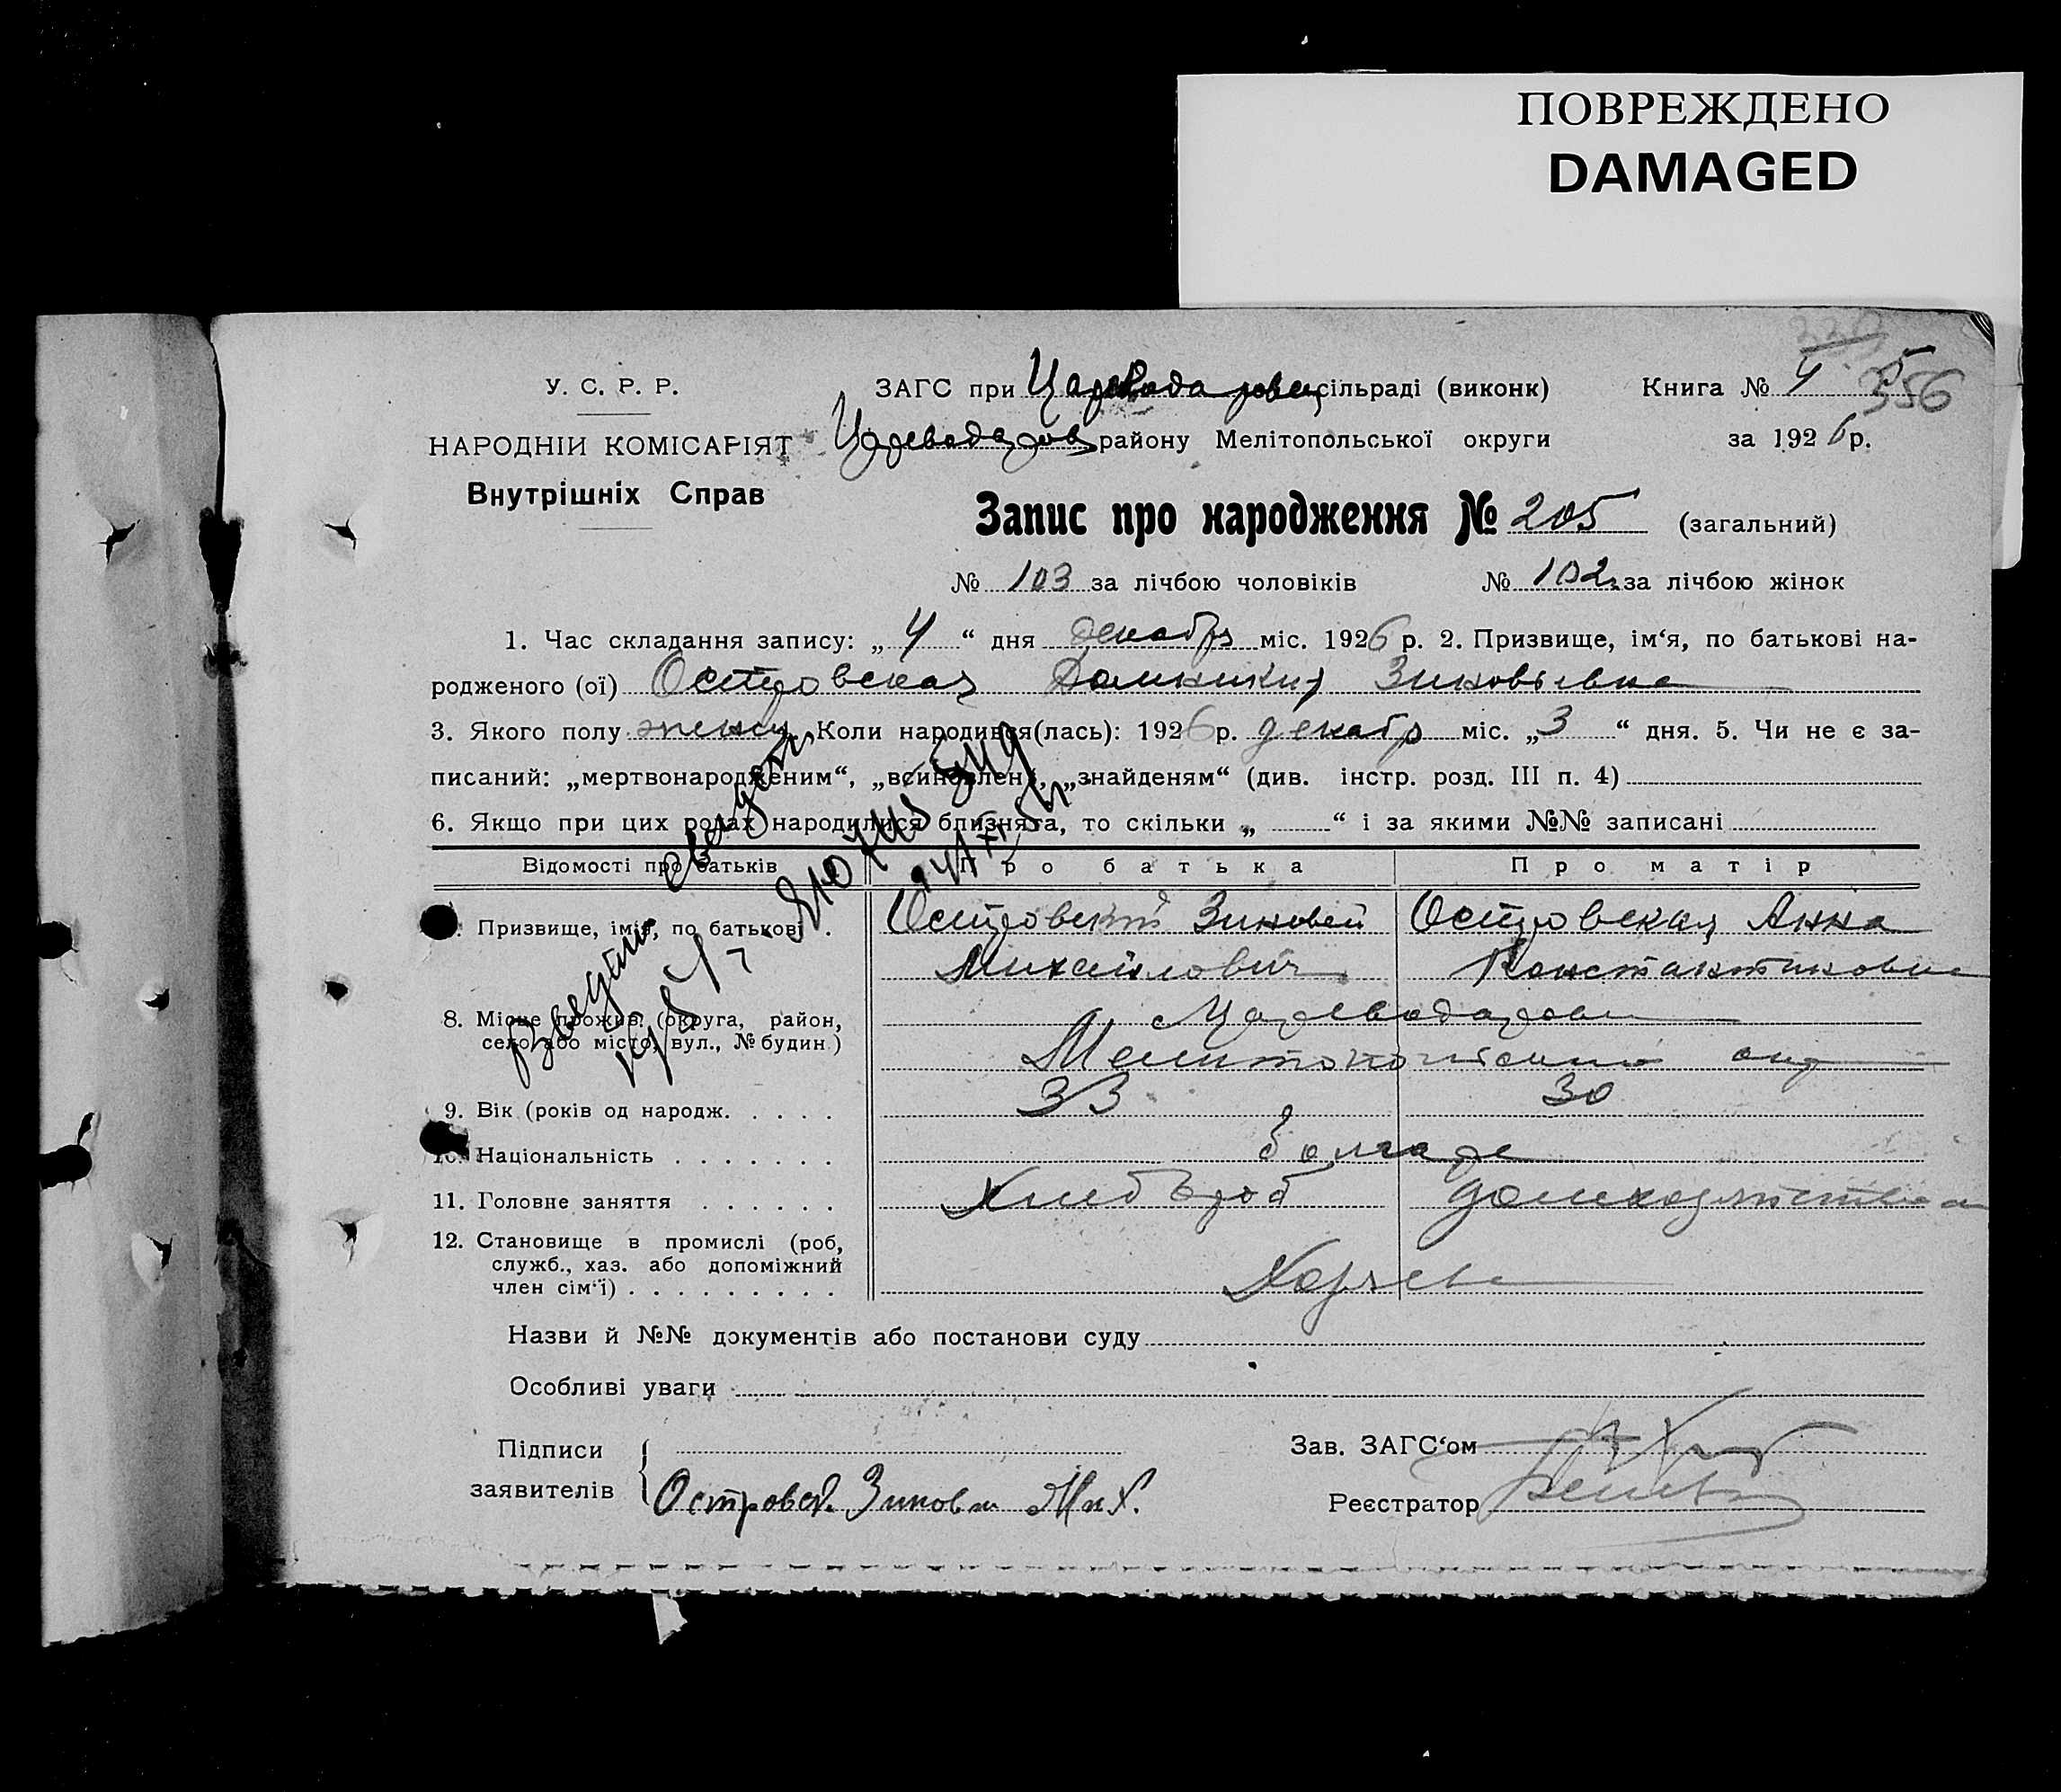 ПОВРЕЖДЕНО
DAMAGED
У. С. Р. Р.
НАРОДНІЙ КОМІСАРІЯТ
Внутрішніх Справ
ЗАГС при сільраді (виконк)
району Мелітопольської округи
Книга № 4
356
за 1926 р.
Запис про народження № 205 (загальний)
№ 103 за лічбою чоловіків № 102 за лічбою жінок
1. Час складання запису: „ 4 “ дня декабря міс. 1926 р. 2. Призвище, ім‘я, по батькові на-
родженого (ої) Островская Зиновьевна
3. Якого полу женск Коли народився(лась): 1926 р. декабр міс. „ 3 “ дня. 5. Чи не є за-
писаний: „мертвонародженим“, „всиновлен“, „знайденям“ (див. інстр. розд. III п. 4)
6. Якщо при цих родах народилися близнята, то скільки „ “ і за якими №№ записані
Відомості про батьків Про батька Про матір
Призвище, ім‘я, по батькові . Островский Зиновей Островская Анна
Михайлович Константиновна
8. Місце прожив. (округа, район,
село або місто, вул., № будин.)
9. Вік (років од народж. . . . . 33 30
10. Національність . . . . . . . болгаре
11. Головне заняття . . . . . . Хлебороб
12. Становище в промислі (роб,
служб., хаз. або допоміжний
член сім‘ї) . . . . . . . . .
Назви й №№ документів або постанови суду
Особливі уваги
Підписи
заявителів
Островс. Зинови Мих.
Зав. ЗАГС‘ом
Реєстратор